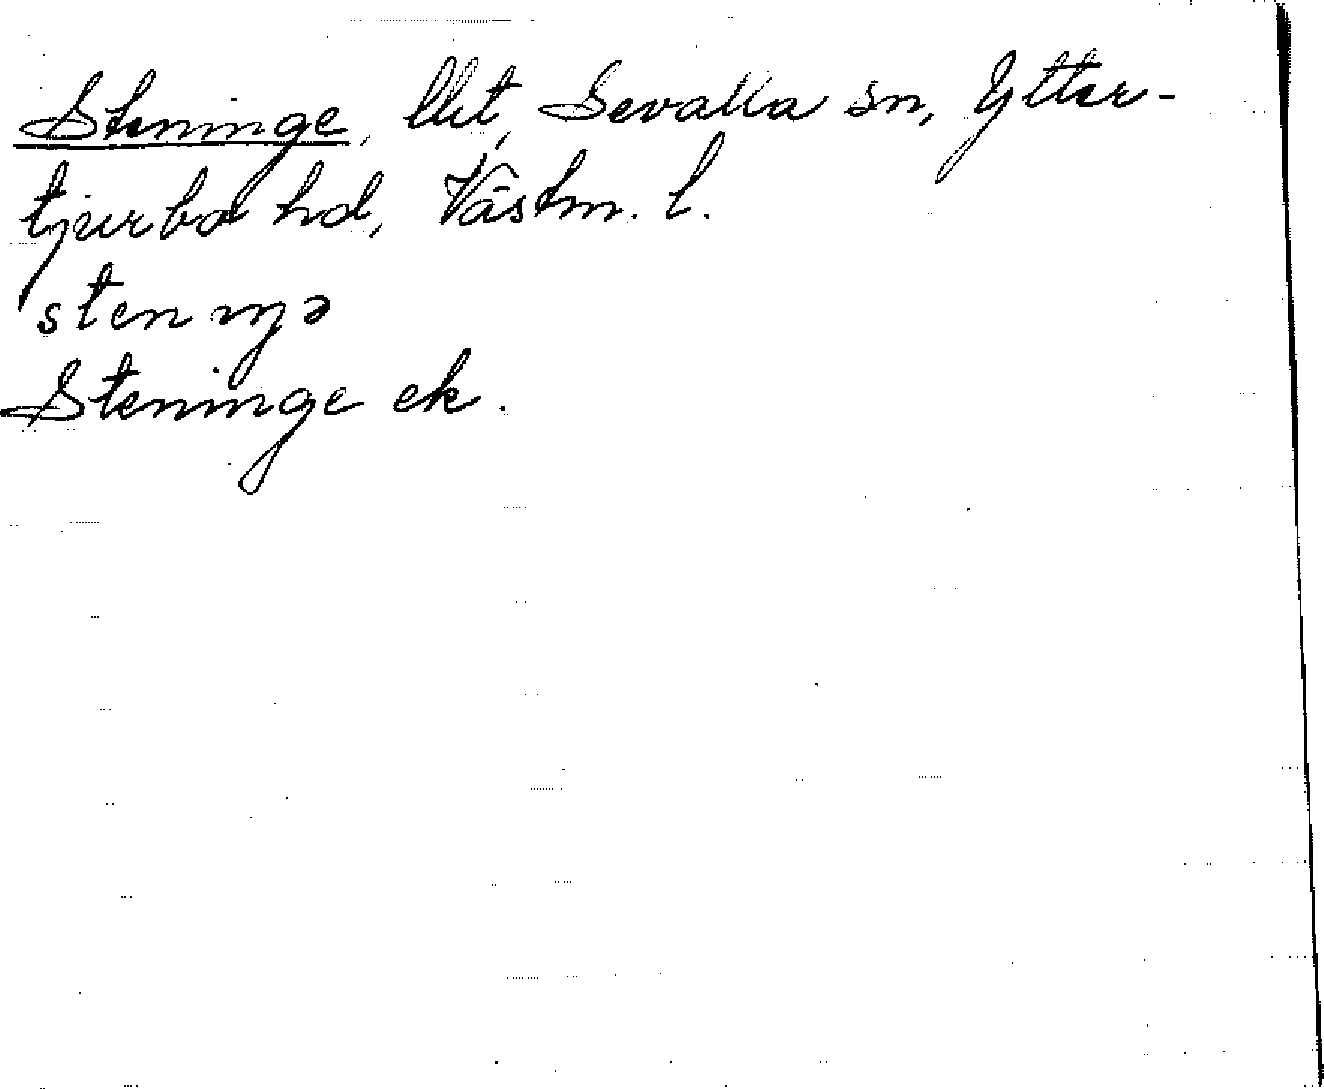 Steninge, lht, Sevalla sn, Ytter-
tjurbo hd, Västm. l.
stenıŋə
Steninge ek.